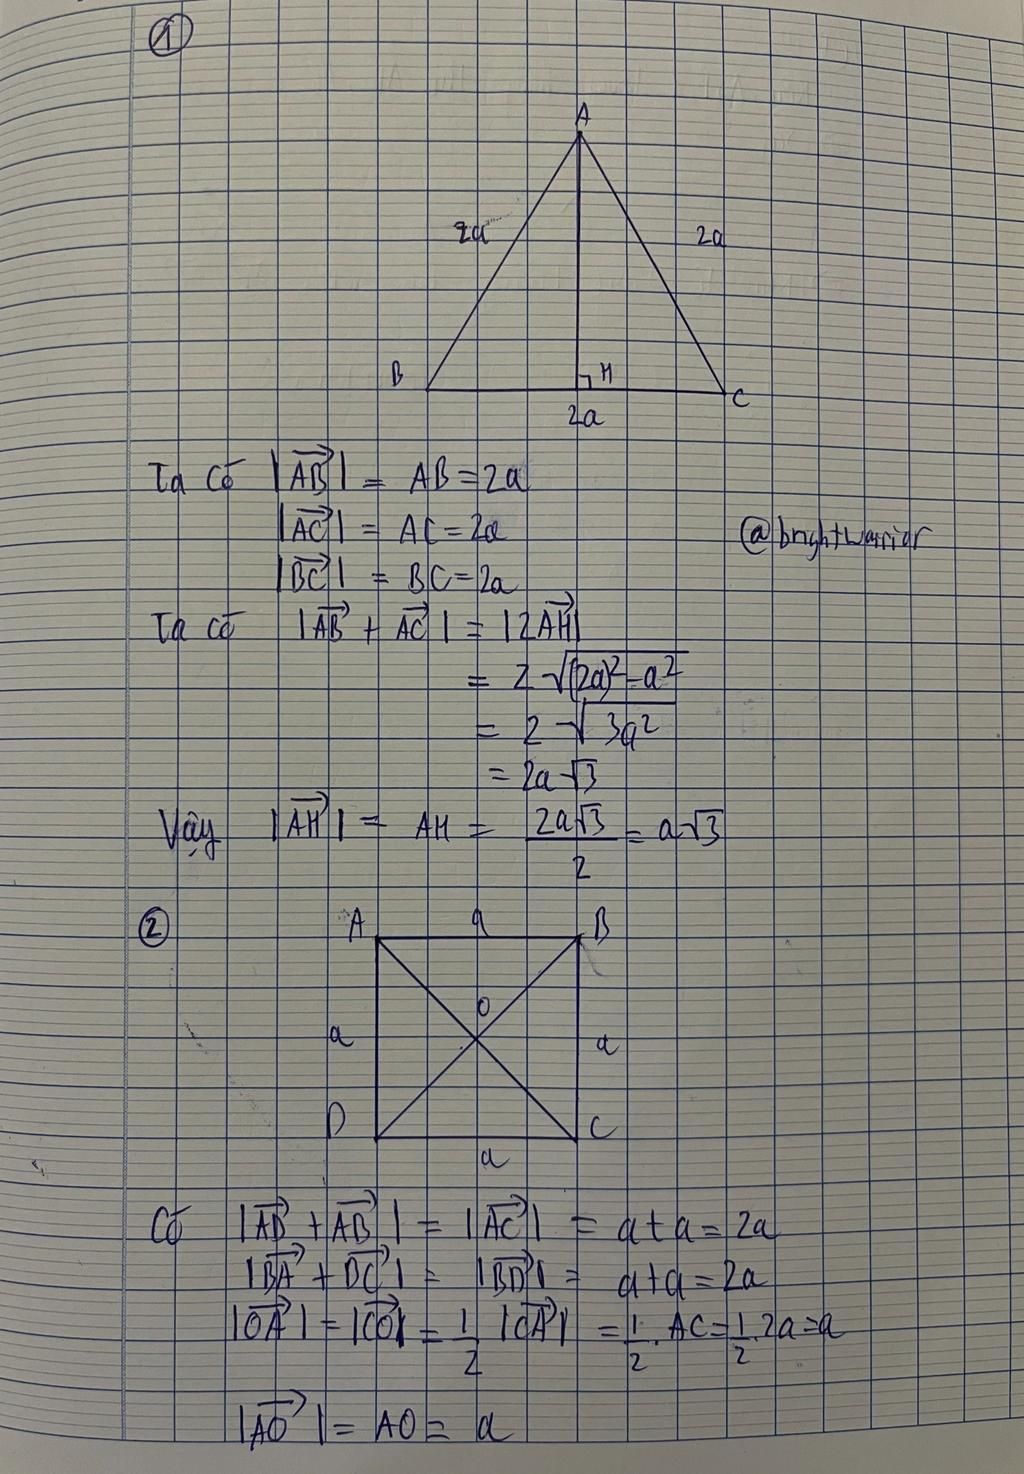 ①
A
2a
2a
B
H
C
2a
Ta có |\overrightarrow{AB}| = AB = 2a
|\overrightarrow{AC}| = AC = 2a
@brightwarrior
|\overrightarrow{BC}| = BC = 2a
Ta có |\overrightarrow{AB} + \overrightarrow{AC}| = |2\overrightarrow{AH}|
= 2√((2a)² - a²)
= 2√(3a²)
= 2a√3
Vậy |\overrightarrow{AH}| = AH = \frac{2a√3}{2} = a√3
②
A
a
B
O
a
a
D
C
a
Có |\overrightarrow{AD} + \overrightarrow{AB}| = |\overrightarrow{AC}| = a + a = 2a
|\overrightarrow{BA} + \overrightarrow{DC}| = |\overrightarrow{BD}| = a + a = 2a
|\overrightarrow{OA}| = |\overrightarrow{CO}| = \frac{1}{2} |\overrightarrow{CA}| = \frac{1}{2} . AC = \frac{1}{2} . 2a = a
|\overrightarrow{AO}| = AO = a